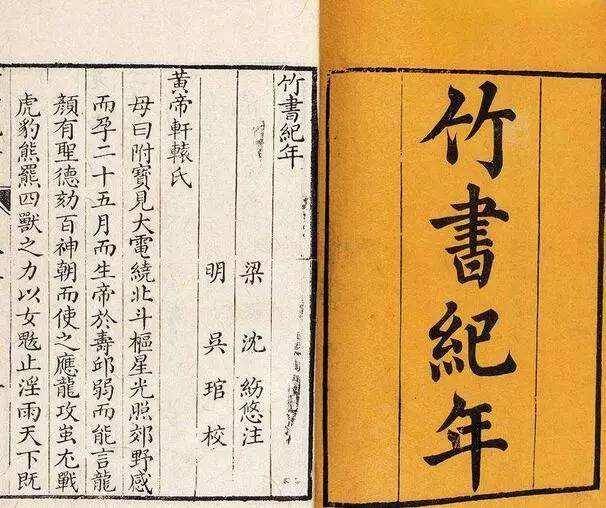 竹書紀年
竹書紀年
梁 沈 注
明 吳 琯 校
黃帝軒轅氏
母曰附寶見大電繞北斗樞星光照郊野感
而孕二十五月而生帝於壽邱弱而能言龍
顏有聖德劾百神朝而使之應龍攻蚩尤戰
虎豹熊羆四獸之力以女魃止淫雨天下既